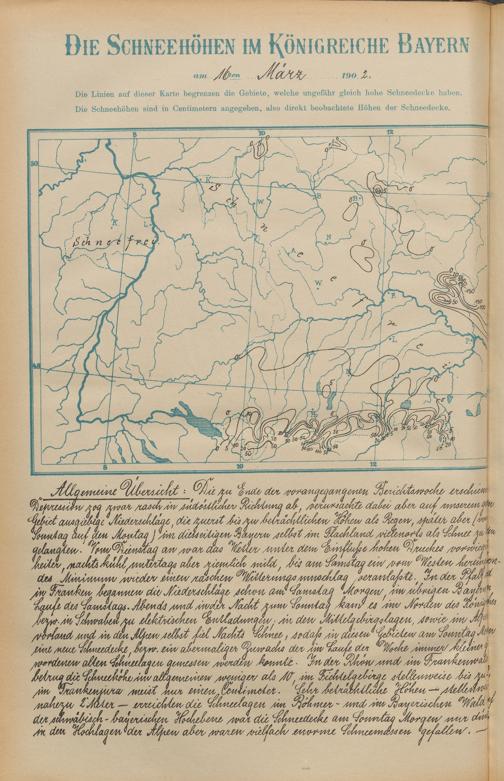 DIE SCHNEEHÖHEN IM KÖNIGREICHE BAYERN
am 16ten März 1902.
Die Linien auf dieser Karte begrenzen die Gebiete, welche ungefähr gleich hohe Schneedecke haben.
Die Schneehöhen sind in Centimetern angegeben, also direkt beobachtete Höhen der Schneedecke.
Schneefrei
Allgemeine Übersicht: Die zu Ende der vorangegangenen Berichtswoche
Depression zog zwar rasch in südöstlicher Richtung ab, verursachte dabei aber auf unserem
Gebiet ausgiebige Niederschläge, die zuerst bis zu beträchtlichen Höhen als Regen, später aber
Sonntag auf den Montag) im diesseitigen Bayern selbst im Flachland vielenorts als Schnee
gelangten. Vom Dienstag an war das Wetter unter dem Einflusse hohen Druckes
heiter, nachts kühl, untertags aber ziemlich mild, bis am Samstag ein vom Westen
des Minimum wieder einen raschen Witterungsumschlag veranlaßte. In der Pfalz
in Franken begannen die Niederschläge schon am Samstag Morgen, im übrigen Bayern
Laufe des Samstags Abends und in der Nacht zum Sonntag kam es im Norden des
bezw. in Schwaben zu elektrischen Entladungen; in den Mittelgebirgslagen, sowie im
vorland und in den Alpen selbst fiel Nachts Schnee, sodaß in diesen Gebieten am Sonntag
eine neue Schneedecke, bezw. ein abermaliger Zuwachs der im Laufe der Woche immer kleiner
wordenen alten Schneelagen gemessen werden konnte. In der Rhön und im Frankenwald
betrug die Schneehöhe im allgemeinen weniger als 10, im Fichtelgebirge stellenweise bis zu
im Frankenjura meist nur einen Centimeter. Sehr beträchtliche Höhen —
nahezu 2 Meter — erreichten die Schneelagen im Böhmer- und im Bayerischen Wald
der schwäbisch-bayerischen Hochebene war die Schneedecke am Sonntag Morgen nur
in den Hochlagen der Alpen aber waren vielfach enorme Schneemassen gefallen. —